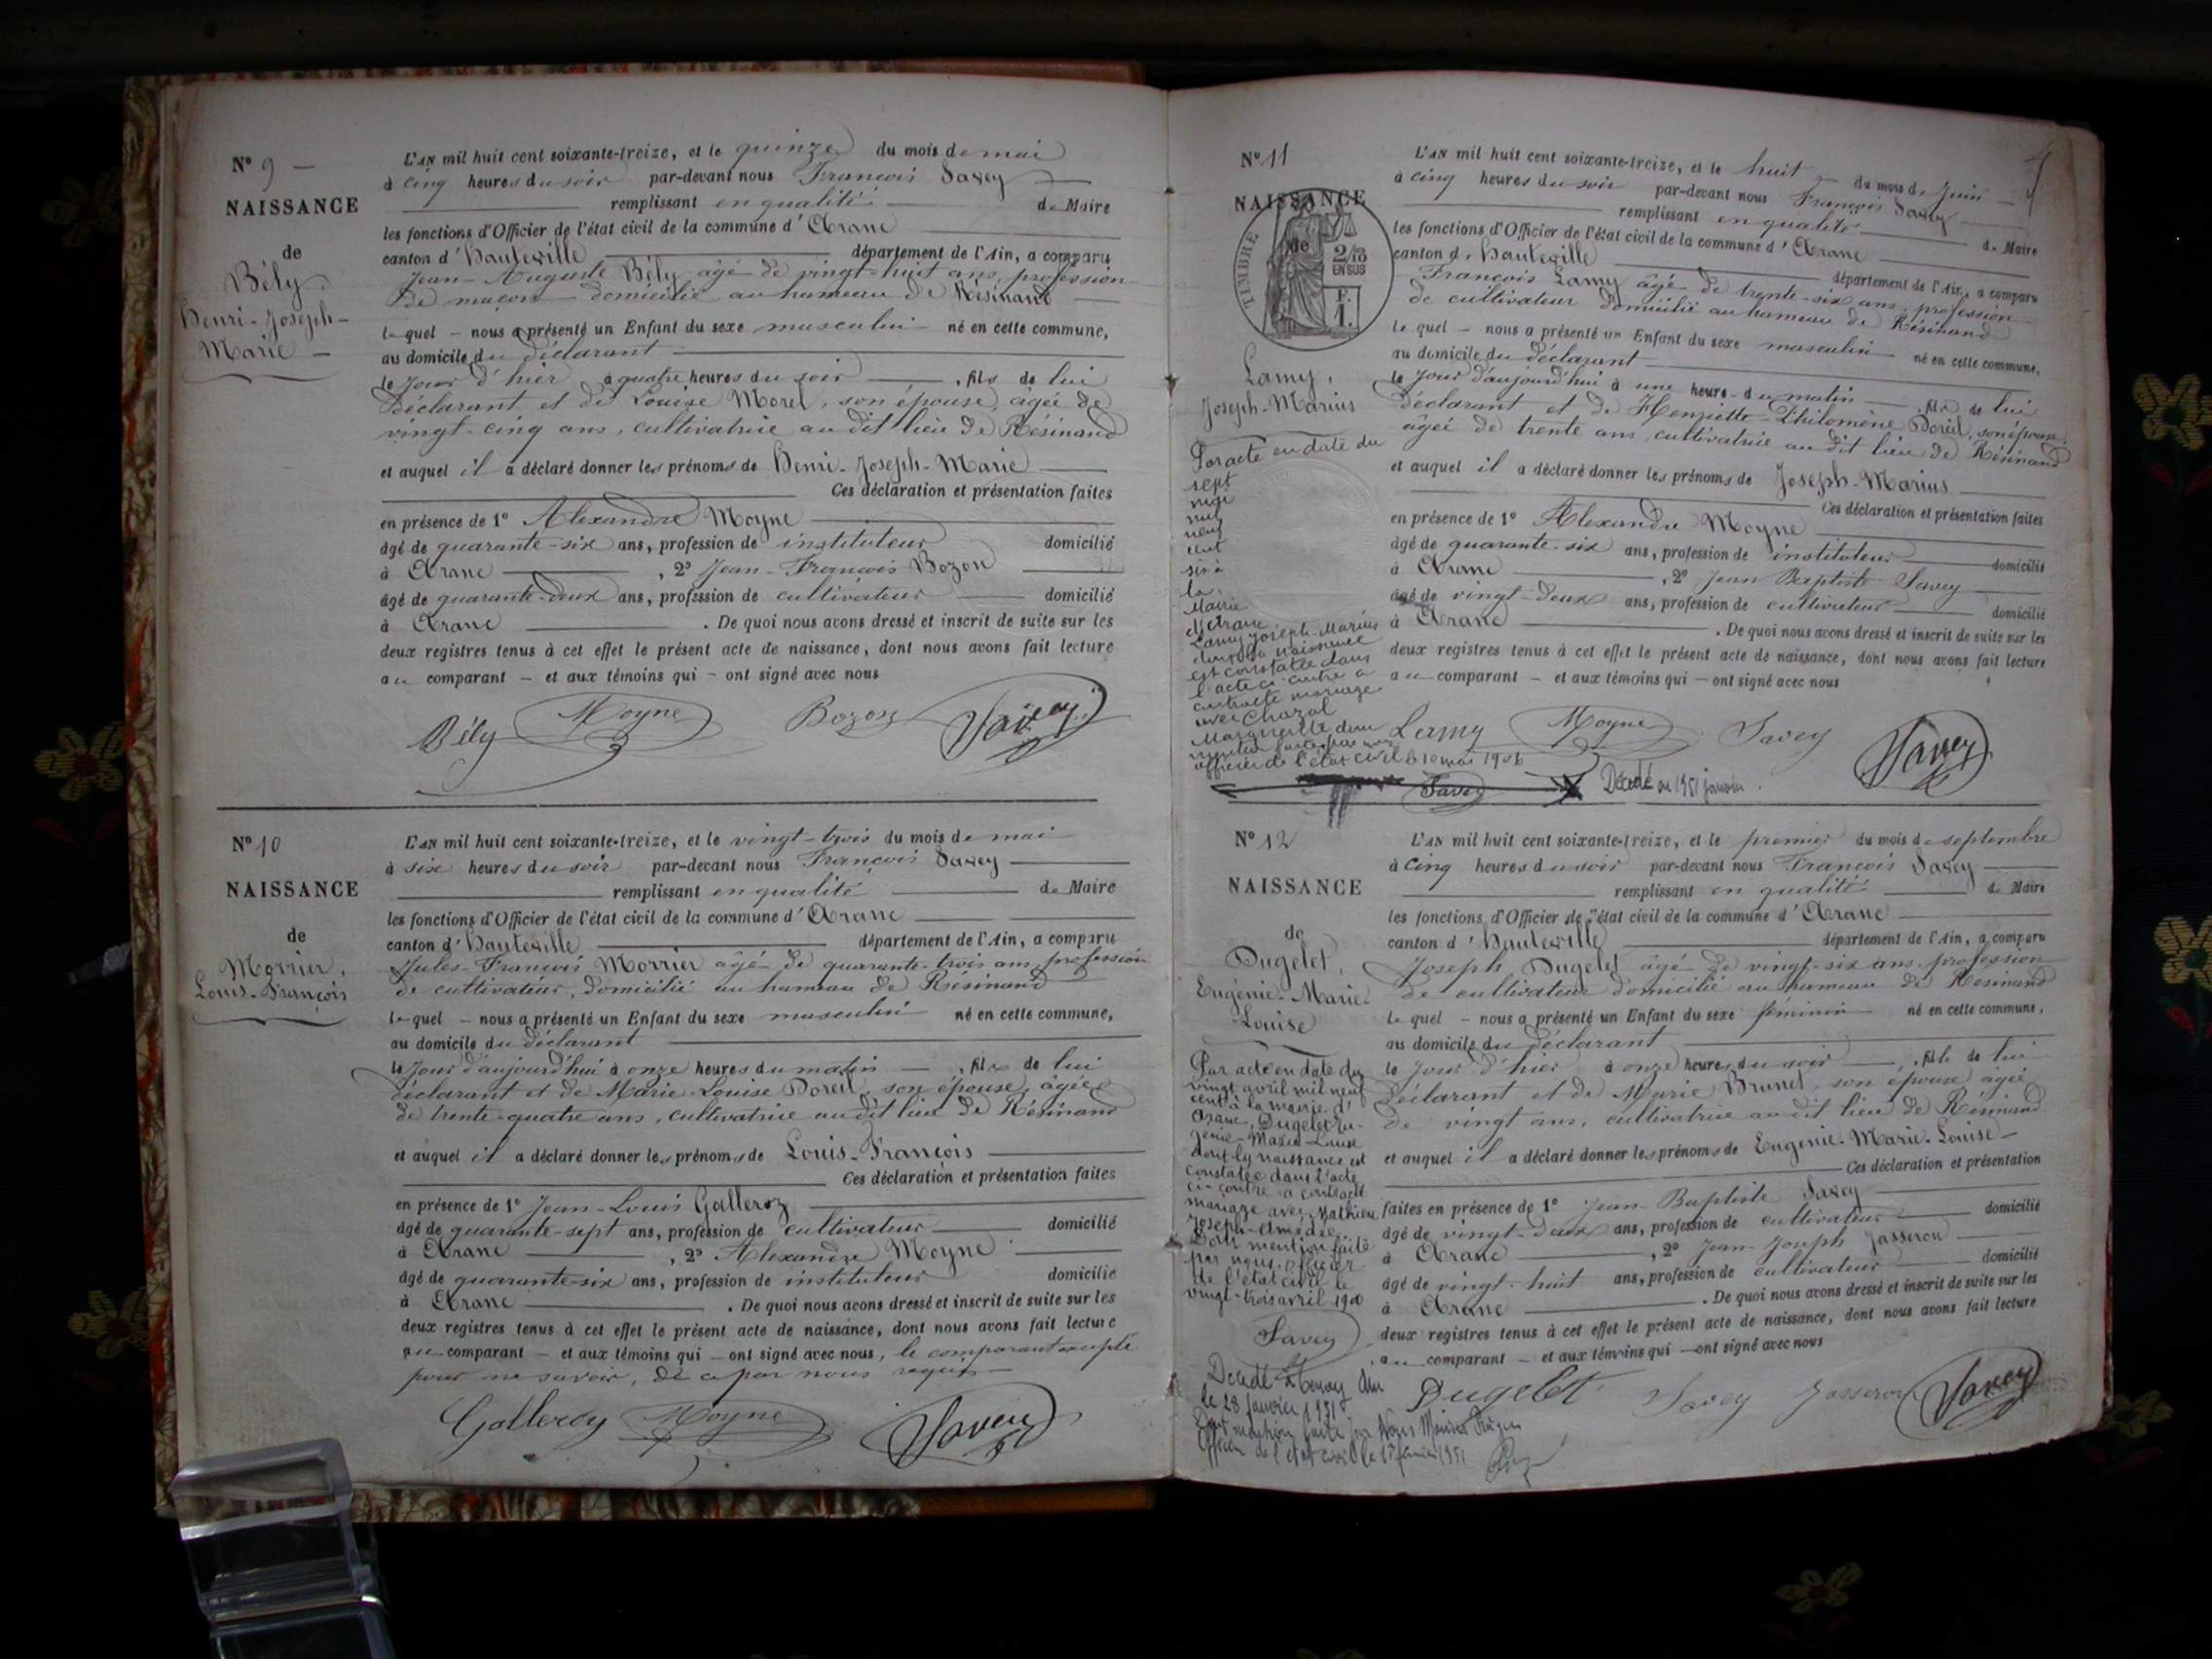 N° 9 —
NAISSANCE
de
Bély,
Henri-Joseph-
Marie —
L'AN mil huit cent soixante-treize, et le quinze du mois de mai
à cinq heures du soir par-devant nous François Savey
remplissant en qualité de Maire
les fonctions d'Officier de l'état civil de la commune d'Aranc
canton d'Hauteville département de l'Ain, a comparu
Jean-Auguste Bély âgé de vingt-huit ans, profession
de maçon domicilié au hameau de Résinand
lequel — nous a présenté un Enfant du sexe masculin né en cette commune,
au domicile du déclarant
le jour d'hier à quatre heures du soir, fils de lui
déclarant et de Louise Morel, son épouse, âgée de
vingt-cinq ans, cultivatrice au dit lieu de Résinand
et auquel il a déclaré donner les prénoms de Henri-Joseph-Marie
Ces déclaration et présentation faites
en présence de 1° Alexandre Moyne
âgé de quarante-six ans, profession de instituteur domicilié
à Aranc, 2° Jean-François Bozon
âgé de quarante-deux ans, profession de cultivateur domicilié
à Aranc. De quoi nous avons dressé et inscrit de suite sur les
deux registres tenus à cet effet le présent acte de naissance, dont nous avons fait lecture
au comparant — et aux témoins qui — ont signé avec nous
Bély Moyne Bozon Savey
N° 10
NAISSANCE
de
Morrier,
Louis-François
L'AN mil huit cent soixante-treize, et le vingt-trois du mois de mai
à six heures du soir par-devant nous François Savey
remplissant en qualité de Maire
les fonctions d'Officier de l'état civil de la commune d'Aranc
canton d'Hauteville département de l'Ain, a comparu
Jules-François Morrier âgé de quarante-trois ans, profession
de cultivateur, domicilié au hameau de Résinand
lequel — nous a présenté un Enfant du sexe masculin né en cette commune,
au domicile du déclarant
le jour d'aujourd'hui à onze heures du matin —, fils de lui
déclarant et de Marie-Louise Doreil, son épouse, âgée
de trente-quatre ans, cultivatrice au dit lieu de Résinand
et auquel il a déclaré donner les prénoms de Louis-François
Ces déclaration et présentation faites
en présence de 1° Jean-Louis Galleroz
âgé de quarante-sept ans, profession de cultivateur domicilié
à Aranc, 2° Alexandre Moyne
âgé de quarante-six ans, profession de instituteur domicilié
à Aranc. De quoi nous avons dressé et inscrit de suite sur les
deux registres tenus à cet effet le présent acte de naissance, dont nous avons fait lecture
au comparant — et aux témoins qui — ont signé avec nous, le comparant excepté
pour ne savoir, de ce par nous requis —
Galleroy Moyne Savey
N° 11
NAISSANCE
de
TIMBRE
2/10
EN SUS
F.
1.
Lamy,
Joseph-Marius
Par acte en date du
sept
neuf
cent
six à
la
Mairie
d'Aranc
Lamy Joseph-Marius
dont la naissance
est constatée dans
l'acte ci-contre a
contracté mariage
avec Chazal
Marguerite dont
mention faite par nous
officier de l'état civil le 10 mai 1906
Savey
Décédé en 1951 janvier.
L'AN mil huit cent soixante-treize, et le huit du mois de Juin
à cinq heures du soir par-devant nous François Savey
remplissant en qualité de Maire
les fonctions d'Officier de l'état civil de la commune d'Aranc
canton d'Hauteville département de l'Ain, a comparu
François Lamy âgé de trente-six ans, profession
de cultivateur domicilié au hameau de Résinand
lequel — nous a présenté un Enfant du sexe masculin né en cette commune,
au domicile du déclarant
le jour d'aujourd'hui à une heure du matin —, fils de lui
déclarant et de Henriette-Philomène Doreil, son épouse,
âgée de trente ans, cultivatrice au dit lieu de Résinand
et auquel il a déclaré donner les prénoms de Joseph-Marius
Ces déclaration et présentation faites
en présence de 1° Alexandre Moyne
âgé de quarante-six ans, profession de instituteur domicilié
à Aranc, 2° Jean Baptiste Savey
âgé de vingt-deux ans, profession de cultivateur domicilié
à Aranc. De quoi nous avons dressé et inscrit de suite sur les
deux registres tenus à cet effet le présent acte de naissance, dont nous avons fait lecture
au comparant — et aux témoins qui — ont signé avec nous
Lamy Moyne Savey Savey
N° 12
NAISSANCE
de
Dugelet,
Eugénie-Marie-
Louise
Par acte en date du
vingt avril mil neuf
cent à la mairie d'
Aranc, Dugelet Eu-
génie-Marie-Louise
dont la naissance est
constatée dans l'acte
ci-contre a contracté
mariage avec Mathieu
Joseph-Amédée.
Dont mention faite
par nous officier
de l'état civil le
vingt-trois avril 1900
Savey
Décédé à Tenay Ain
le 28 janvier 1951
Dont mention faite par Nous
Officier de l'état civil le 1 février 1951
L'AN mil huit cent soixante-treize, et le premier du mois de septembre
à cinq heures du soir par-devant nous François Savey
remplissant en qualité de Maire
les fonctions d'Officier de l'état civil de la commune d'Aranc
canton d'Hauteville département de l'Ain, a comparu
Joseph Dugelet âgé de vingt-six ans, profession
de cultivateur domicilié au hameau de Résinand
lequel — nous a présenté un Enfant du sexe féminin né en cette commune,
au domicile du déclarant
le jour d'hier à onze heures du soir —, fille de lui
déclarant et de Marie Brunet, son épouse âgée
de vingt ans, cultivatrice au dit lieu de Résinand
et auquel il a déclaré donner les prénoms de Eugénie-Marie-Louise —
Ces déclaration et présentation
faites en présence de 1° Jean-Baptiste Savey
âgé de vingt-deux ans, profession de cultivateur domicilié
à Aranc, 2° Jean-Joseph Jasseron
âgé de vingt-huit ans, profession de cultivateur domicilié
à Aranc. De quoi nous avons dressé et inscrit de suite sur les
deux registres tenus à cet effet le présent acte de naissance, dont nous avons fait lecture
au comparant — et aux témoins qui — ont signé avec nous
Dugelet Savey Jasseron Savey